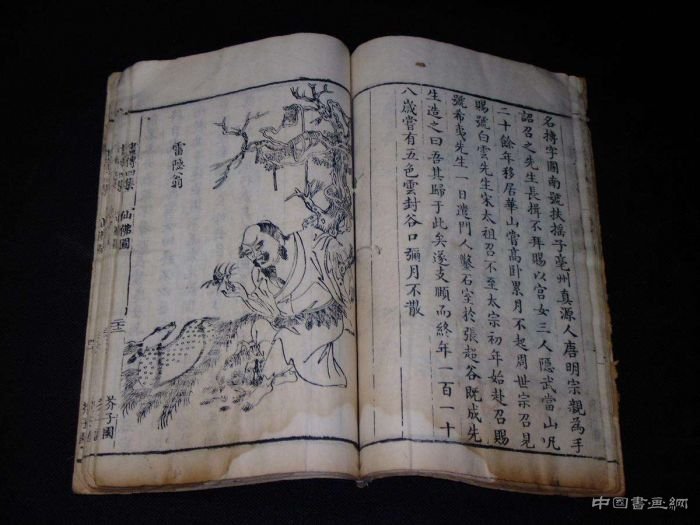 名摶字圖南號扶搖子亳州真源人唐明宗親為手
詔召之先生長揖不拜賜以宮女三人隱武當山凡
二十餘年移居華山嘗高卧累月不起周世宗召見
賜號白雲先生宋太祖召不至太宗初年始赴召賜
號希夷先生一日遣門人鑿石室於張超谷既成先
生造之曰吾其歸于此矣遂支頤而終年一百一十
八歲嘗有五色雲封谷口彌月不散
雷隱翁
畫傳四集
仙佛圖
芥子園
中国書画網